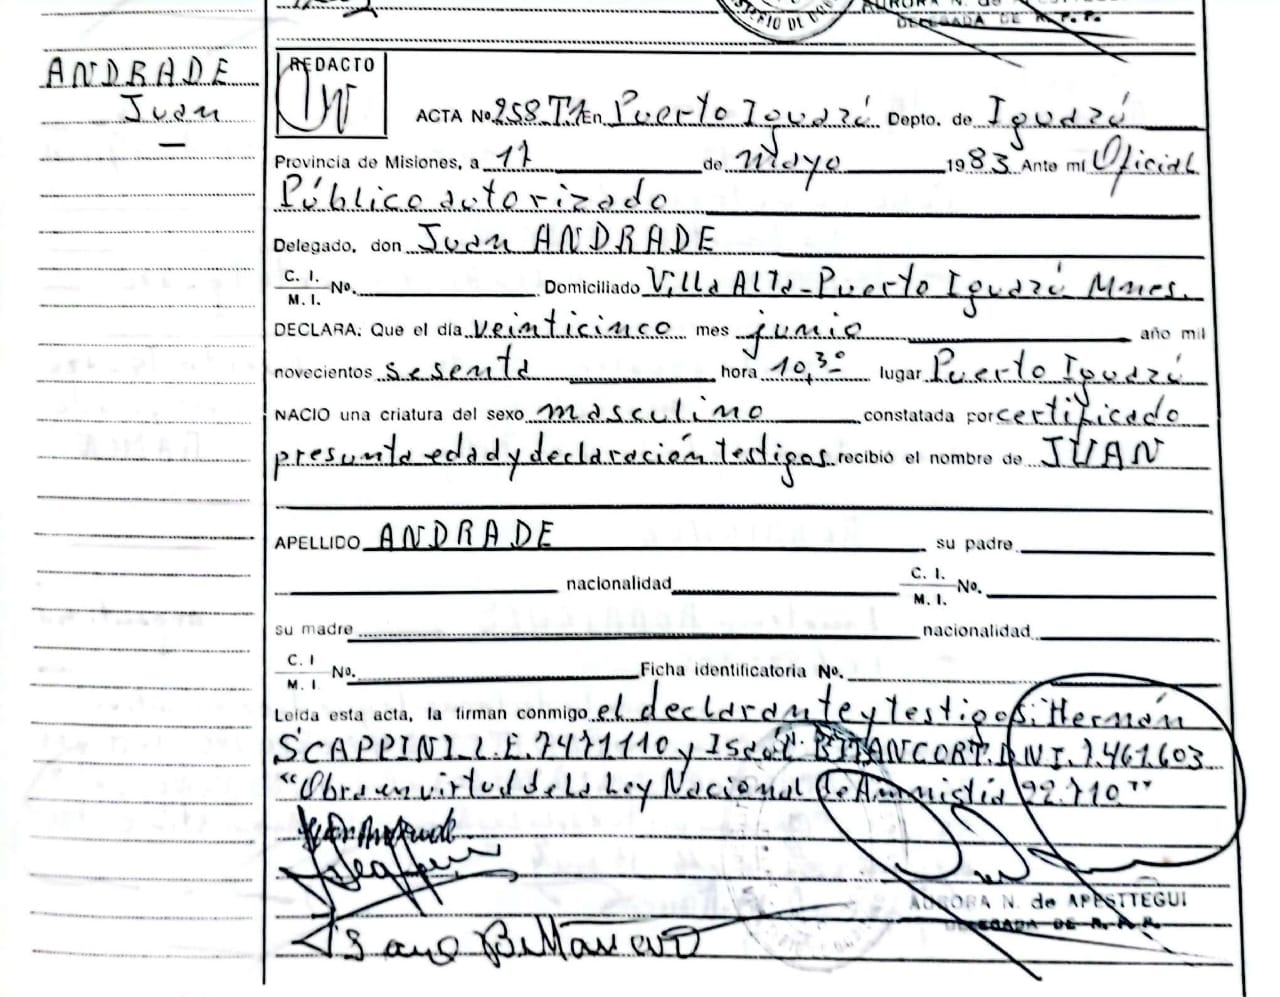 ANDRADE
Juan
REDACTO
ACTA No. 258 T1 En Puerto Iguazú Depto. de Iguazú
Provincia de Misiones, a 17 de mayo 1983 Ante mí Oficial
Público autorizado
Delegado, don Juan ANDRADE
C. I.
M. I. No. Domiciliado Villa Alta - Puerto Iguazú Mnes.
DECLARA: Que el día veinticinco mes junio año mil
novecientos sesenta hora 10,30 lugar Puerto Iguazú
NACIO una criatura del sexo masculino constatada por certificado
presunta edad y declaración testigos recibió el nombre de JUAN
APELLIDO ANDRADE su padre
nacionalidad C. I.
M. I. No.
su madre nacionalidad
C. I
M. I. No. Ficha identificatoria No.
Leída esta acta, la firman conmigo el declarante y testigos: Hernán
SCAPPINI L.E. 7471110 y BITANCORT. D.N.I. 7.461.603
"Obra en virtud de la Ley Nacional de Amnistía 22.710"
AURORA N. de APESTTEGUI
DELEGADA DE R. P. P.